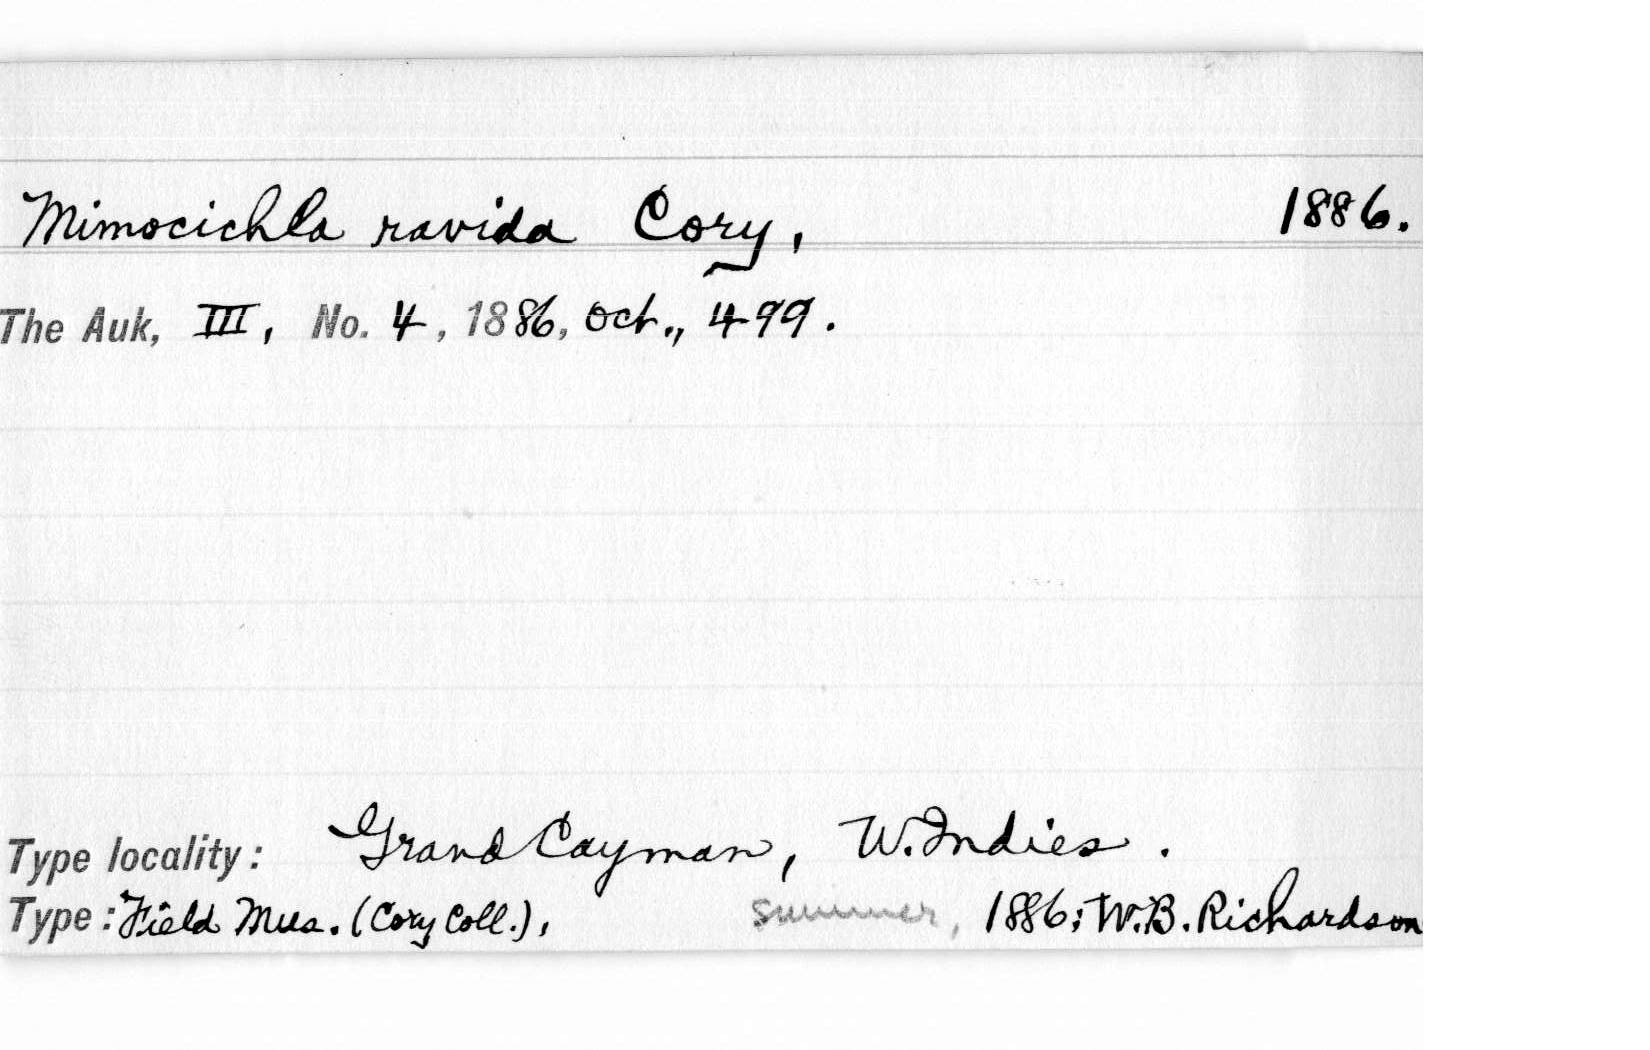 Mimocichla ravida Cory, 1886.
The Auk, III, No. 4, 1886, Oct., 499.
Type locality: Grand Cayman, W. Indies.
Type: Field Mus. (Cory Coll.), summer, 1886; W.B. Richardson